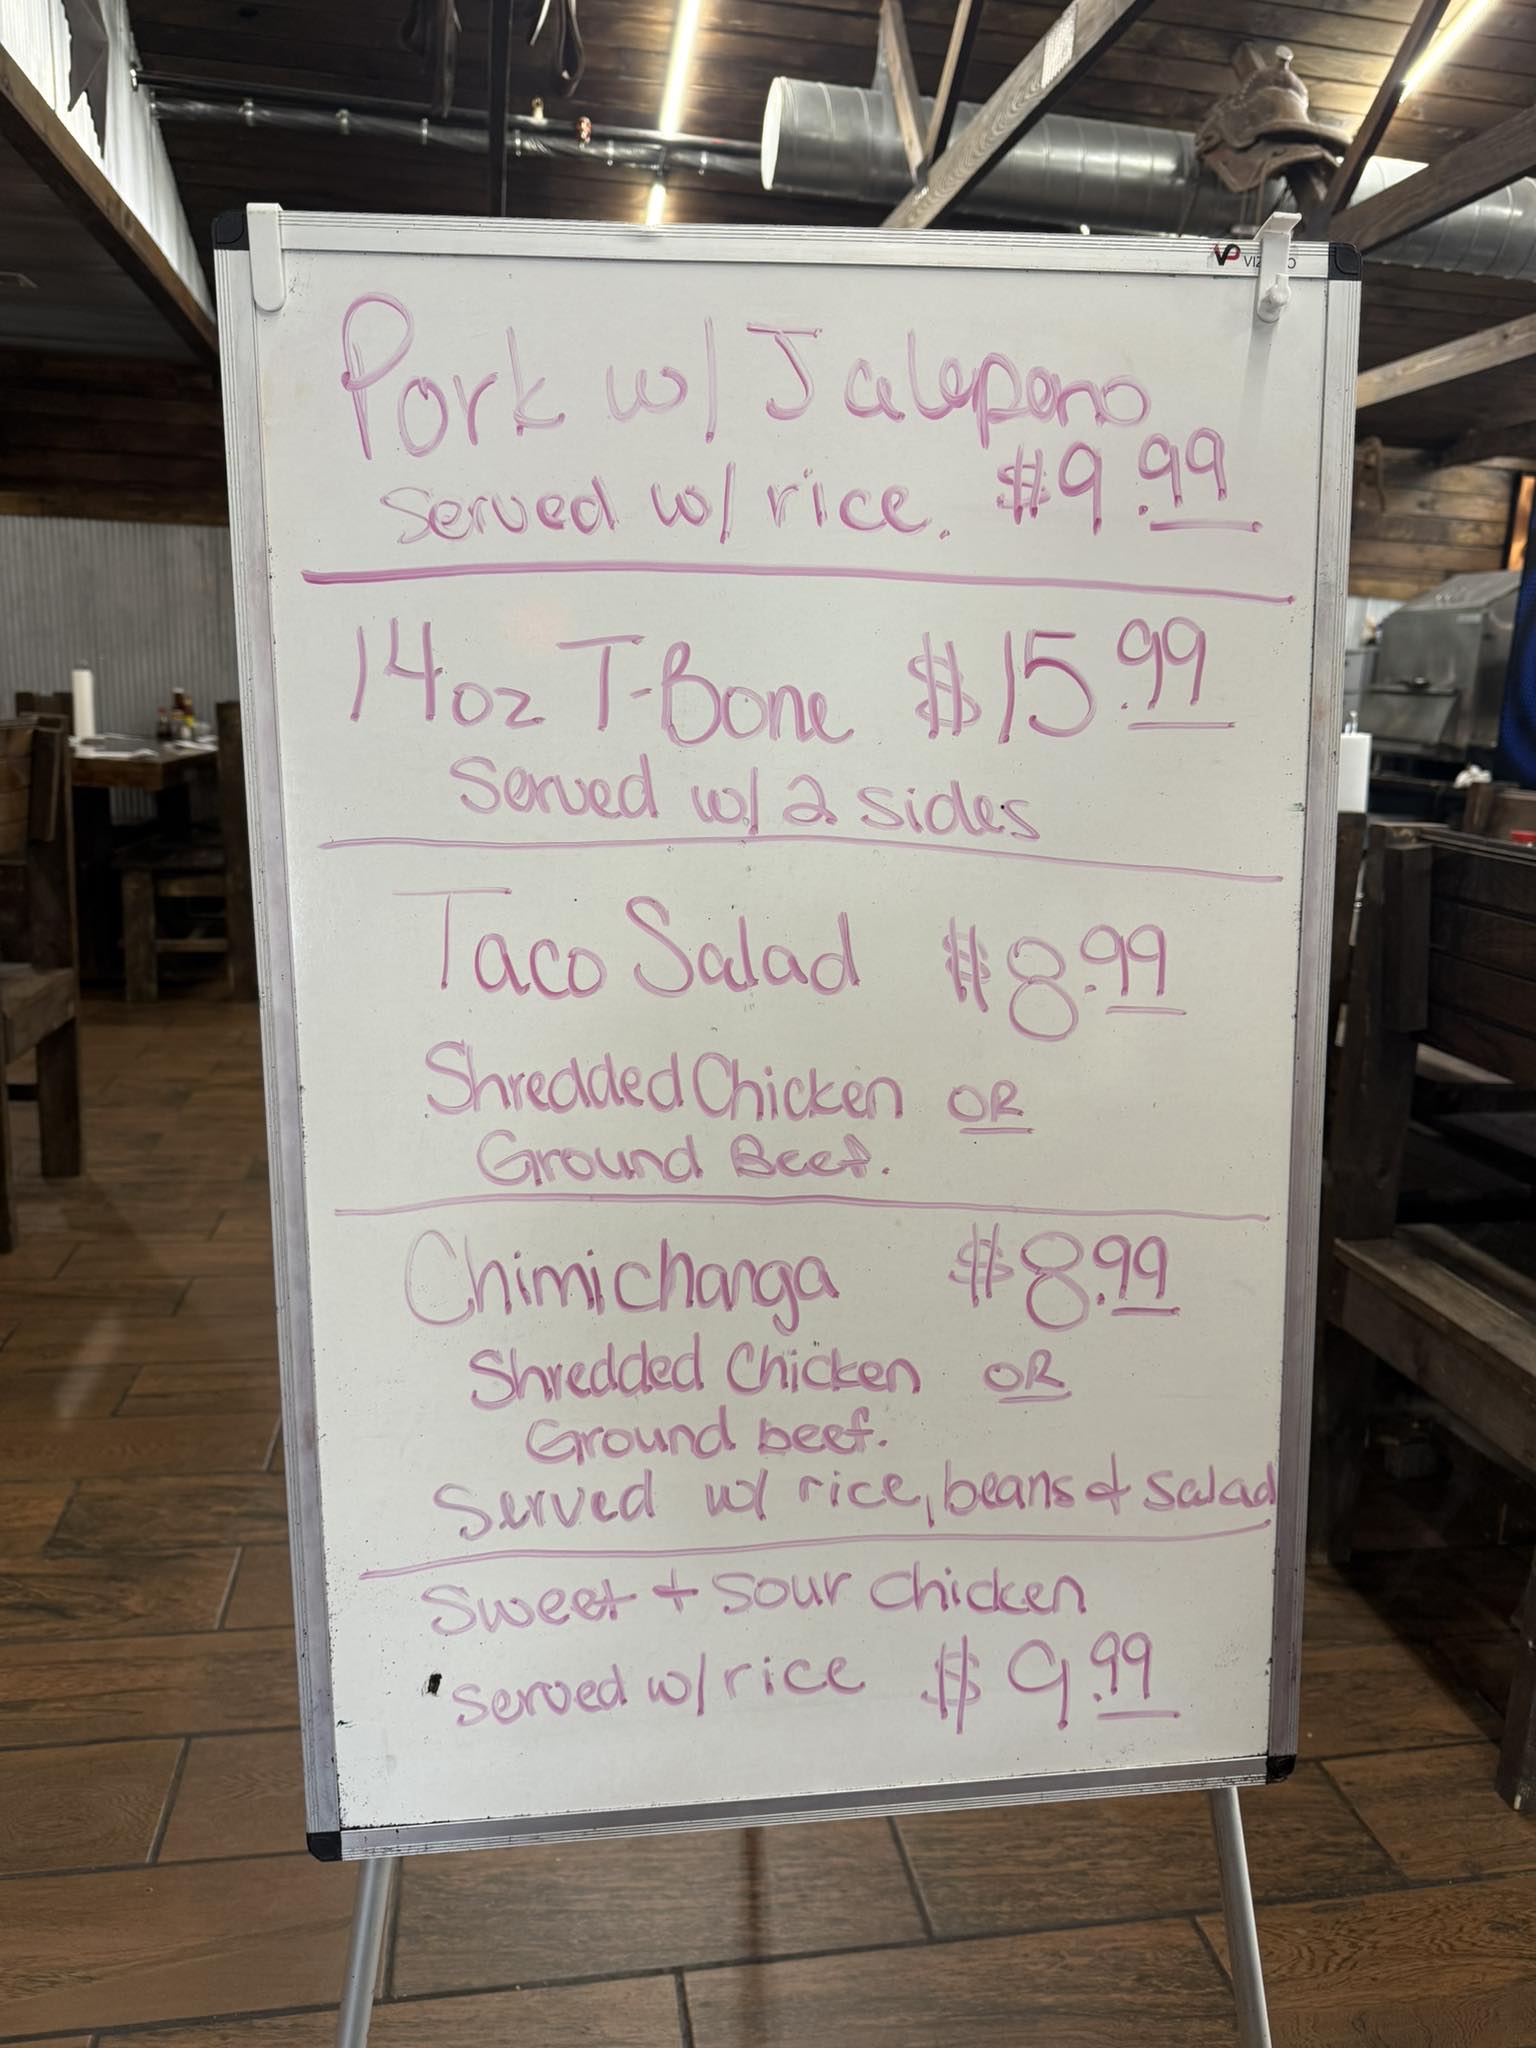 Pork w/ Jalepeno
served w/ rice. $9.99
14oz T-Bone $15.99
Served w/ 2 sides
Taco Salad $8.99
Shredded Chicken OR
Ground Beef.
Chimichanga $8.99
Shredded Chicken OR
Ground beef.
Served w/ rice, beans & salad
Sweet + Sour Chicken
served w/ rice $9.99